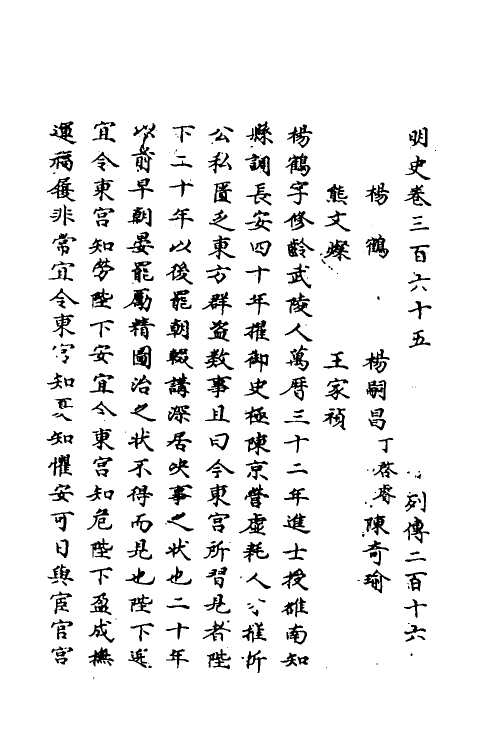 明史卷三百六十五 列傳二百十六
楊鶴 楊嗣昌 丁啓睿 陳奇瑜
熊文燦 王家禎
楊鶴字修齡武陵人萬曆三十二年進士授雄南知
縣調長安四十年擢御史極陳京營虛耗人 推折
公私匱乏東方群盜数事且曰今東宮所習見者陛
下二十年以後罷朝輟講深居决事之状也二十年
以前早朝晏罷勵精圖治之状不得而見也陛下逸
宜令東宮知勞陛下安宜令東宮知危陛下盈成撫
運福履非常宜令東宮知憂知懼安可日與宦官宮